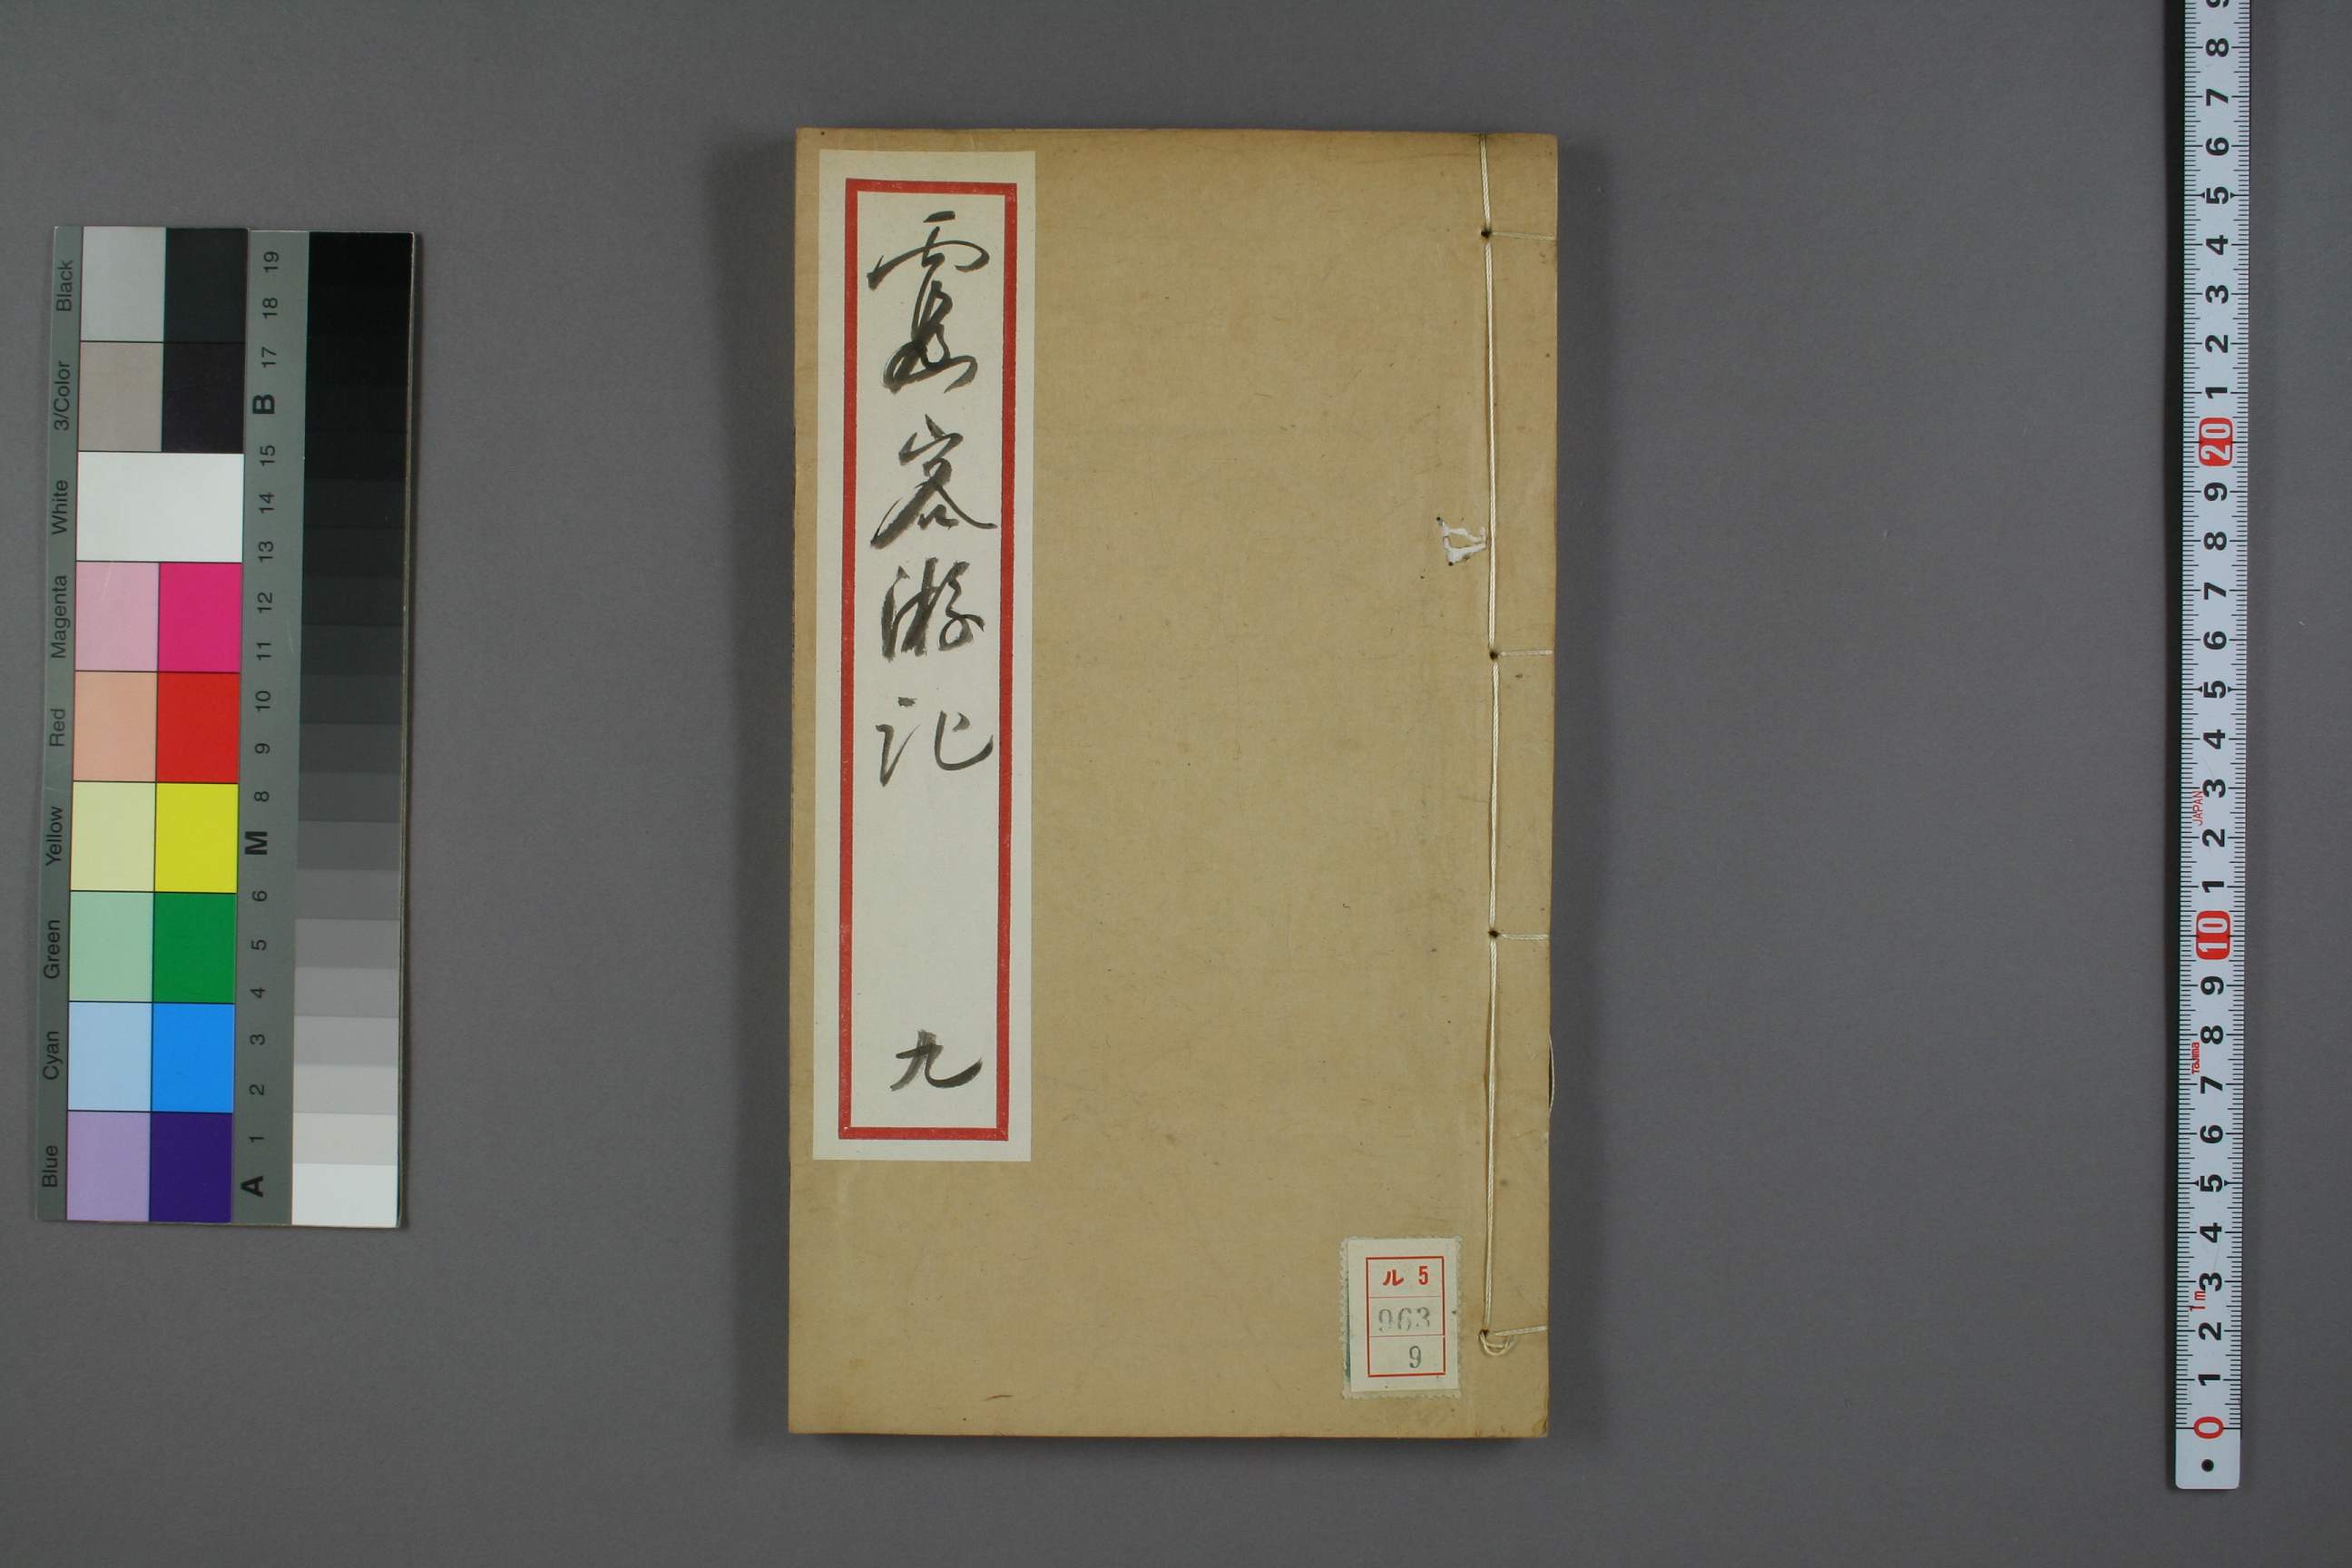 霞客游記
九
ル 5
963
9
Black
3/Color
White
Magenta
Red
Yellow
Green
Cyan
Blue
19
18
17
B
15
14
13
12
11
10
9
8
M
6
5
4
3
2
1
A
9
8
7
6
5
4
3
2
1
20
9
8
7
6
5
4
3
JAPAN
2
1
10
9
8
Tajima
7
6
5
4
3
1m
2
1
0